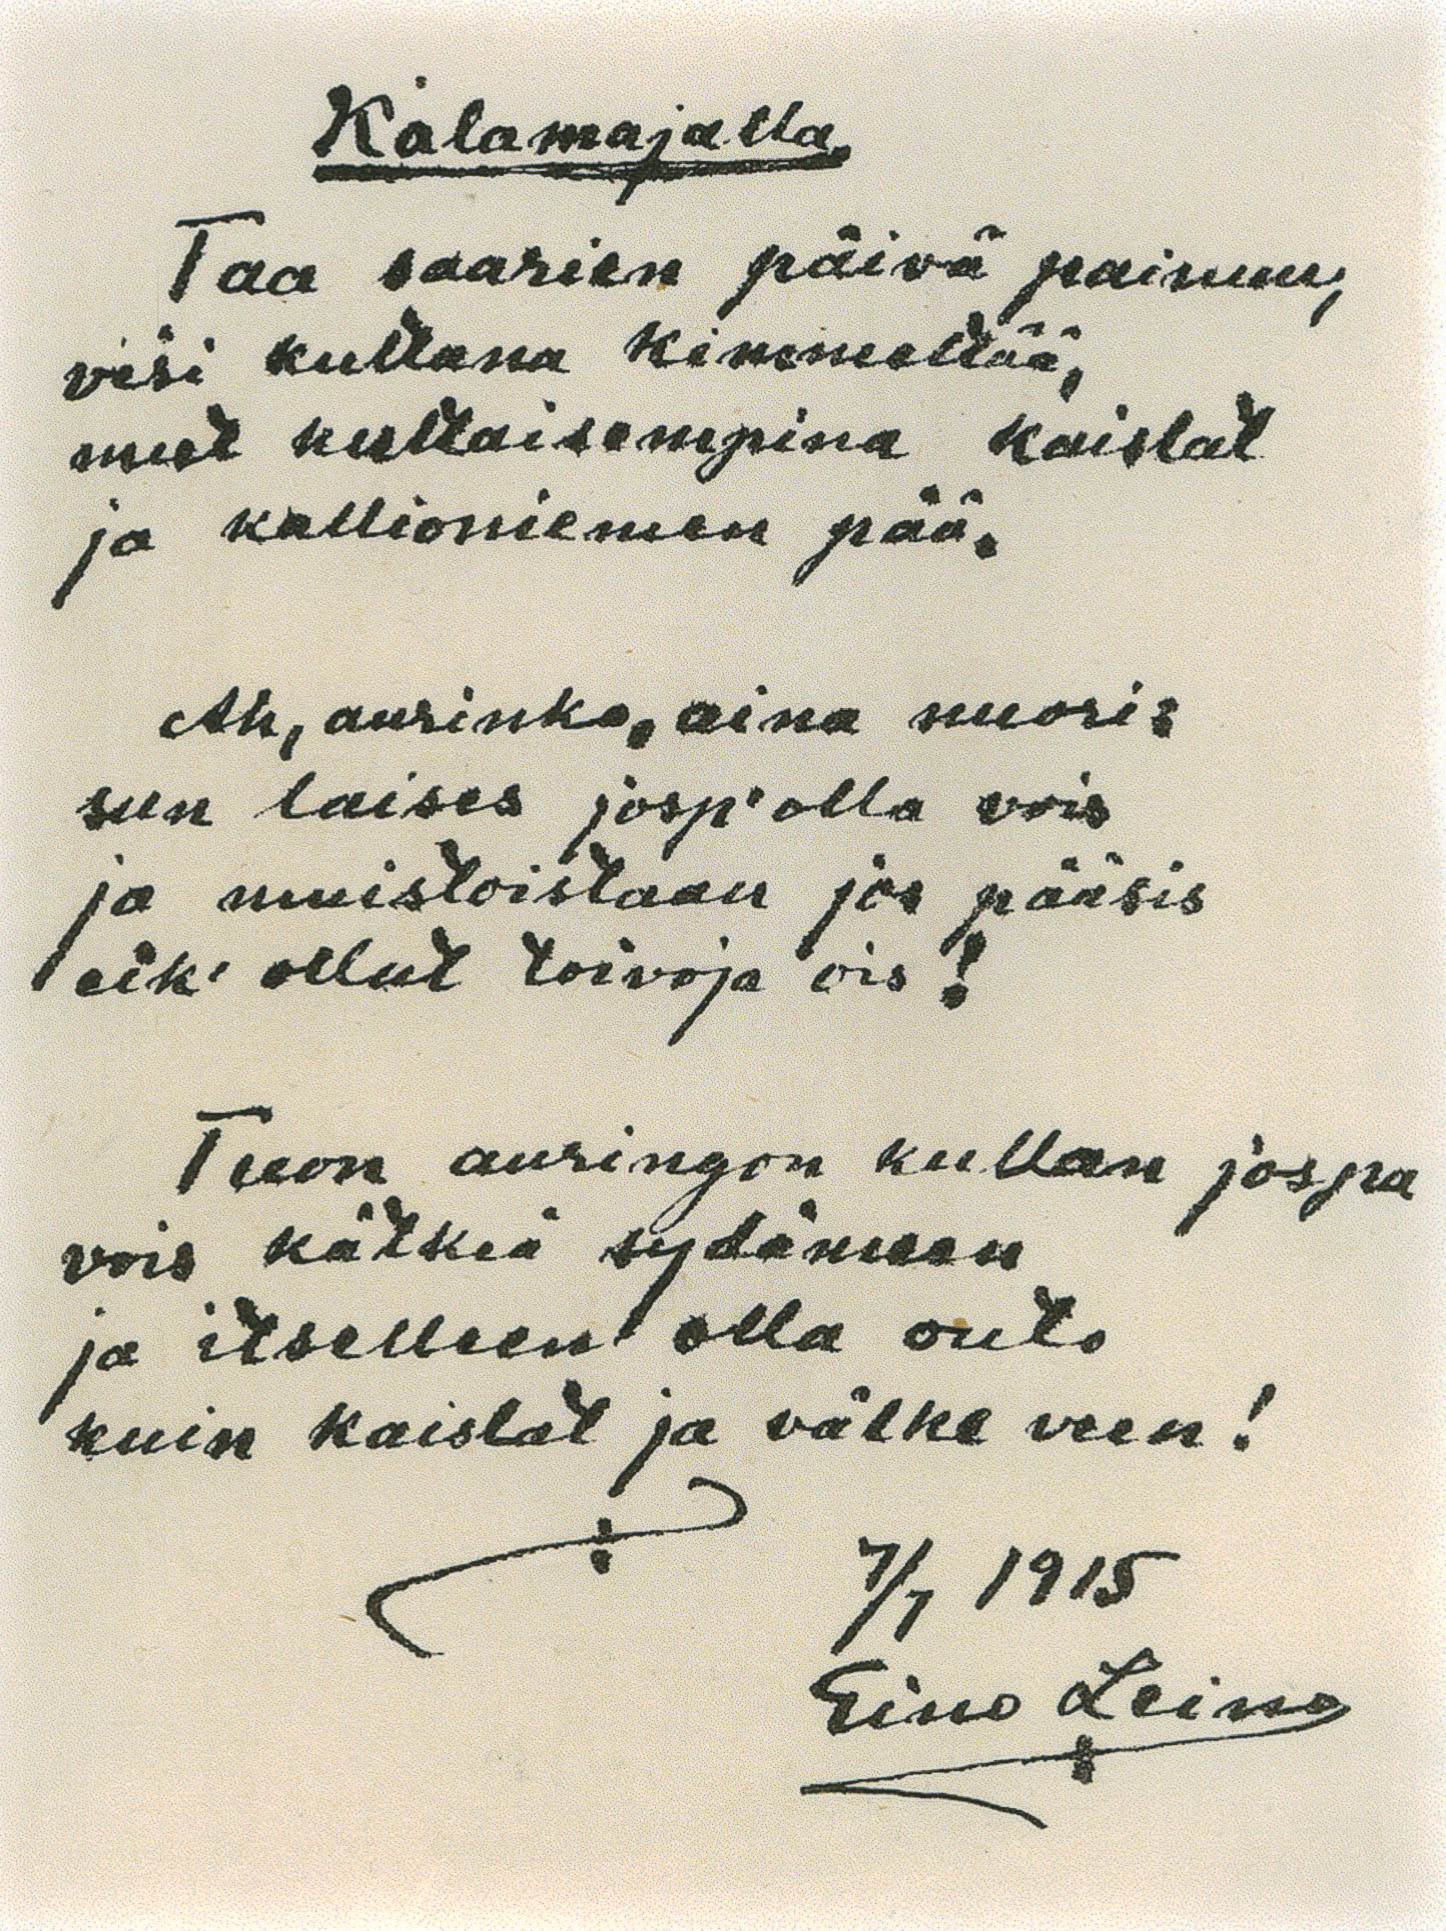 Kalamajalla.
Taa saarien päivä painuu,
vesi kultana kimmeltää,
mut kultaisempina kaislat
ja kallioniemen pää.
Ah, aurinko, aina nuori:
sun laises josp' olla vois
ja muistoistaan jos pääsis
eik' ollut toivoja ois!
Tuon auringon kullan jospa
vois kätkeä sydämeen
ja itselleen olla outo
kuin kaislat ja välke veen!
7/7 1915
Eino Leino